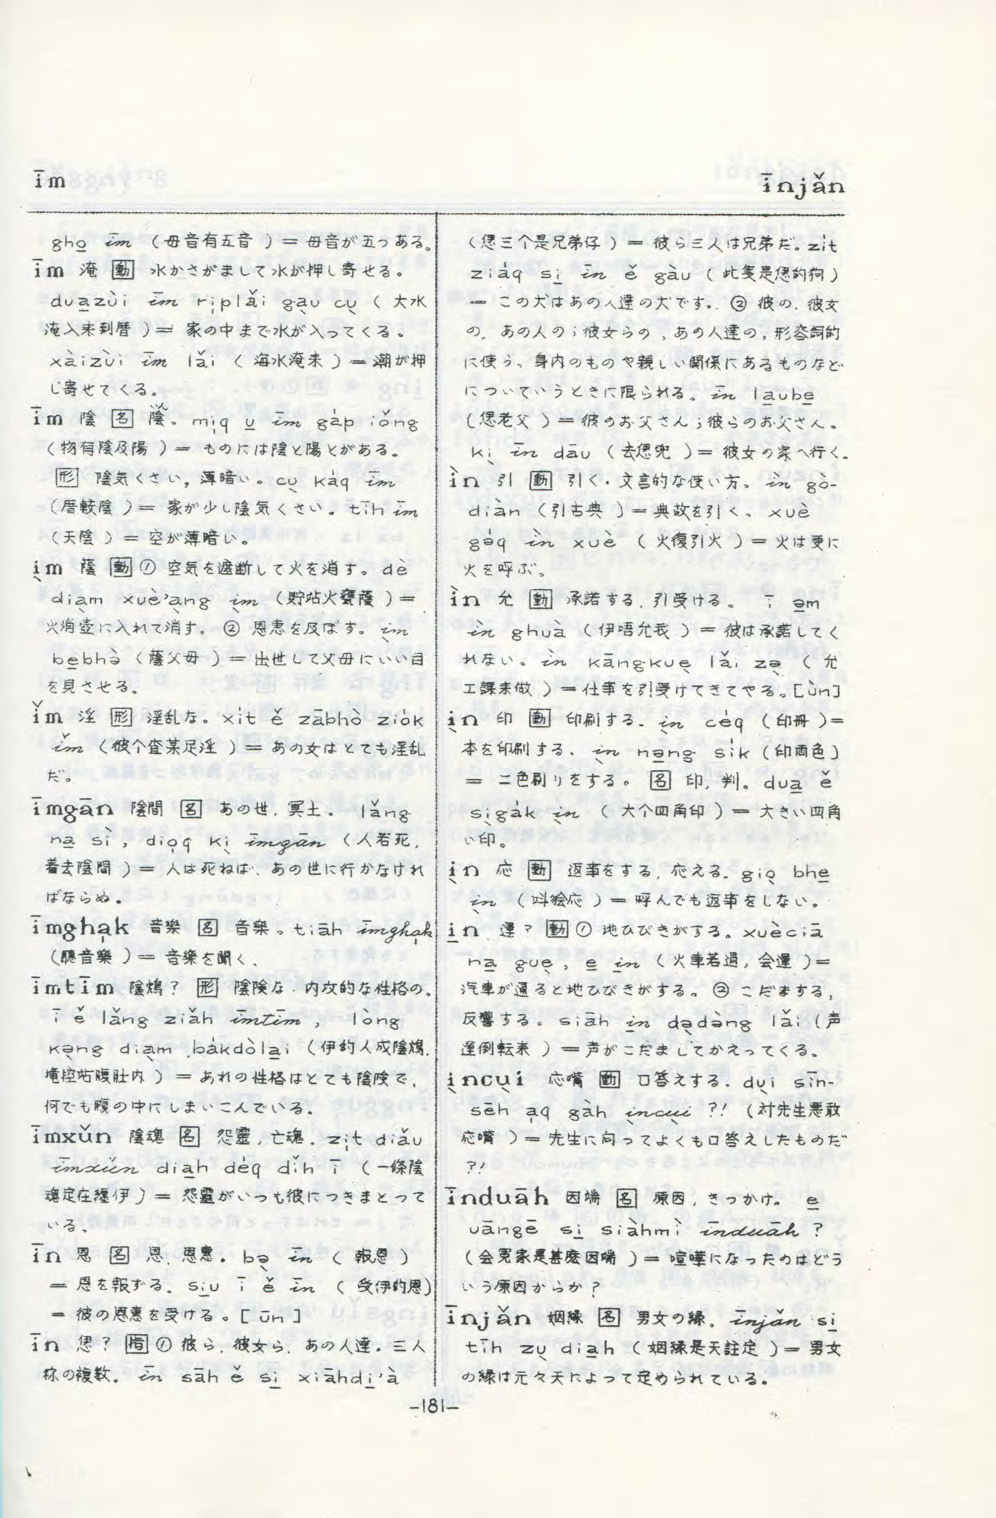 īm
īnjǎn
gho̱ īm (母音有五音) = 母音が五つある。
īm 淹 [動] 水かさがまして水が押し寄せる。
duạzùi īm rịplǎi gạu cụ ( 大水
淹入来到厝 ) = 家の中まで水が入ってくる。
xàizùi īm lǎi ( 海水淹来 ) = 潮が押
し寄せてくる。
īm 陰 [名] 陰。 mịq u̱ īm gàp iǒng
(物有陰及陽 ) = ものには陰と陽とがある。
[形] 陰気くさい, 薄暗い。 cụ kàq īm
(厝較陰 ) = 家が少し陰気くさい。 tīh īm
(天陰 ) = 空が薄暗い。
ịm 蔭 [動] ① 空気を遮断して火を消す。 dè
diạm xuè'ạng ịm (貯站火甕蔭 ) =
火消壺に入れて消す。 ② 恩恵を及ぼす。 ịm
be̱bhə̀ (蔭父母 ) = 出世して父母にいい目
を見させる。
ǐm 淫 [形] 淫乱な。 xit ě zābhò ziok
ǐm (彼个査某足淫 ) = あの女はとても淫乱
だ。
īmgān 陰間 [名] あの世, 冥土。 lǎng
na̱ sì , diọq kị īmgān (人若死,
着去陰間 ) = 人は死ねば, あの世に行かなけれ
ばならぬ。
īmghạk 音樂 [名] 音樂。 tiāh īmghạk
(聴音樂 ) = 音樂を聞く。
īmtīm 陰鴆? [形] 陰険な・内攻的な性格の。
ī ě lǎng ziǎh īmtīm , lòng
kạng diạm bàkdòlại (伊的人成陰鴆,
俺控站腹肚内 ) = あれの性格はとても陰険で,
何でも腹の中にしまいこんでいる。
īmxǔn 陰魂 [名] 怨霊, 亡魂。 zịt diǎu
īmxǔn diạh dèq dǐh ī (一條陰
魂定在纏伊 ) = 怨霊がいつも彼につきまとって
いる。
īn 恩 [名] 恩, 恩恵。 bə̣ īn ( 報恩 )
= 恩を報ずる。 siu̱ ī ě īn ( 受伊的恩)
= 彼の恩恵を受ける。 [ ūn ]
īn 您? [指] ① 彼ら, 彼女ら, あの人達。三人
称の複数。 īn sāh ě si̱ xiāhdị'à
(您三个是兄弟仔 ) = 彼ら三人は兄弟だ。 zit
ziàq si̱ īn ě gàu ( 此隻是您的狗 )
= この犬はあの人達の犬です。 ② 彼の, 彼女
の, あの人の; 彼女らの, あの人達の, 形容詞的
に使う, 身内のものや親しい関係にあるものなど
についていうときに限られる。 īn la̱ube̱
(您老父 ) = 彼のお父さん; 彼らのお父さん。
kị īn dāu (去您兜 ) = 彼女の家へ行く。
ìn 引 [動] 引く・文言的な使い方。 ìn gò-
diàn (引古典 ) = 典故を引く。 xuè
gəq ìn xuè ( 火復引火 ) = 火は更に
火を呼ぶ。
ìn 允 [動] 承諾する, 引受ける。 ī əm
ìn ghuà (伊唔允我 ) = 彼は承諾してく
れない。 ìn kāngkuẹ lǎi zə̣ ( 允
工課来做 ) = 仕事を引受けてきてやる。 [ ùn ]
ịn 印 [動] 印刷する。 ịn cèq (印冊 ) =
本を印刷する。 ịn nə̱ng sik (印両色 )
= 二色刷りをする。 [名] 印, 判。 dua̱ ě
sịgak ịn ( 大个四角印 ) = 大きい四角
い印。
ịn 応 [動] 返事をする, 応える。 giọ bhe̱
ịn (叫袂応 ) = 呼んでも返事をしない。
i̱n 運? [動] ① 地ひびきがする。 xuèciā
na̱ gụe, e̱ i̱n ( 火車若過, 会運 ) =
汽車が通ると地ひびきがする。 ② こだまする,
反響する。 siāh i̱n dədə̀ng lǎi (声
運倒転来 ) = 声がこだましてかえってくる。
ịncụi 応嘴 [動] 口答えする。 dụi sīn-
sēh aq gàh ịncụi ?! (対先生悪敢
応嘴 ) = 先生に向ってよくも口答えしたものだ
?!
īnduāh 因端 [名] 原因, きっかけ。 e̱
uāngē si̱ siàhmì īnduāh ?
(会冤家是甚麼因端 ) = 喧嘩になったのはどう
いう原因からか?
īnjǎn 姻縁 [名] 男女の縁。 īnjǎn si̱
tīh zụ diạh ( 姻縁是天註定 ) = 男女
の縁は元々天によって定められている。
-181-